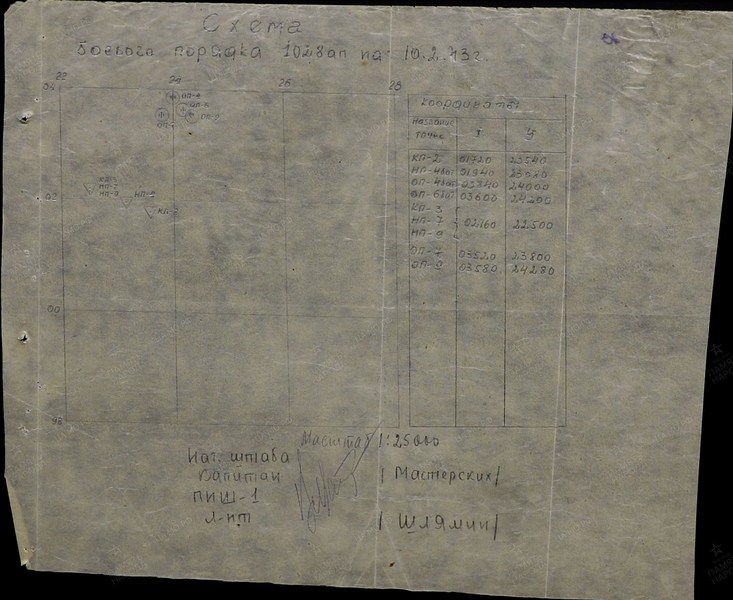 Схема
боевого порядка 1028ап на 10.2.43г.
22 24 26 28
04
ОП-7
НП-7
НП-9
02
00
98
Координаты
КП-2 01720 23540
НП-4бат 01940 23080
ОП-4бат 03840 24000
ОП-6бат 03600 24200
КП-3
НП-7 02160 22500
НП-9
ОП-7 03520 23800
ОП-9 03580 24280
Масштаб 1:25000
Нач. штаба
Капитан /Мастерских/
ПНШ-1
Л-нт /Шлямин/